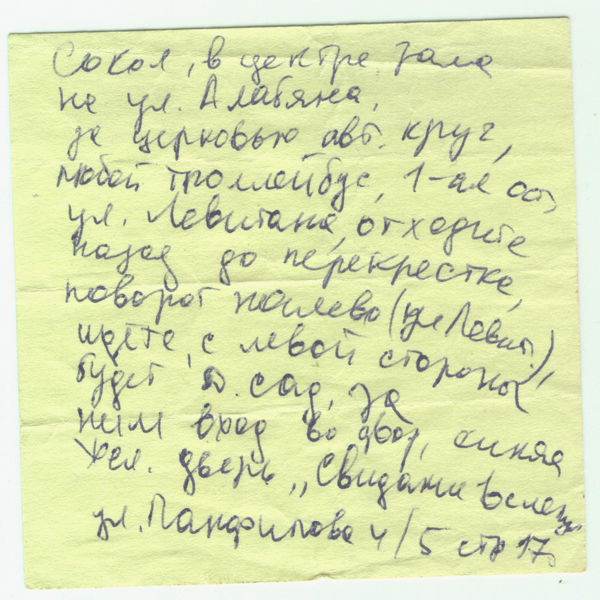 Сокол, в центре зала
на ул. Алабяна,
за церковью авт. круг,
любой троллейбус, 1-ая ост.
ул. Левитана, отходите
назад до перекрестка,
поворот налево (ул Левит.),
идёте, с левой стороны
будет д. сад, за
ним вход во двор, синяя
жел. дверь „Свидание вслепую
ул. Панфилова 4/5 стр 17